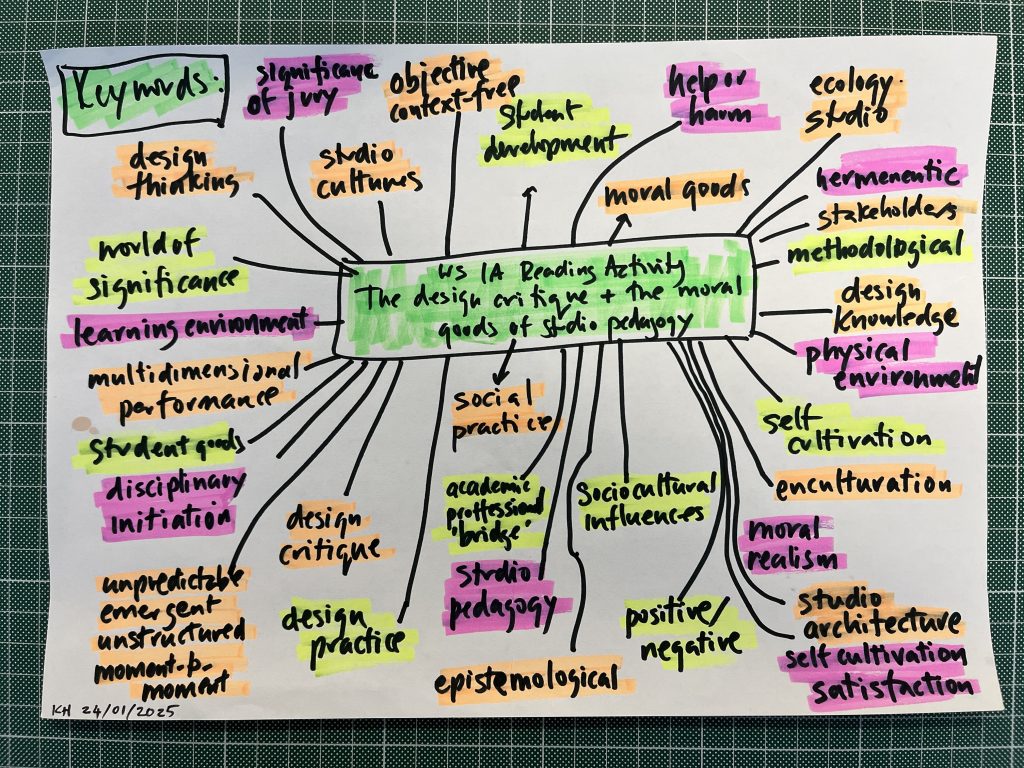 Keywords:
significance
of jury
objective
context-free
student
development
help or
harm
ecology
studio
design
thinking
studio
cultures
moral goods
hermeneutic
stakeholders
methodological
world of
significance
WS 1A Reading Activity
The design critique + the moral
goods of studio pedagogy
learning environment
design
knowledge
physical
environment
multidimensional
performance
social
practice
self
cultivation
student goods
disciplinary
initiation
academic
proffessional
'bridge'
sociocultural
influences
enculturation
design
critique
moral
realism
unpredictable
emergent
unstructured
moment-to-
moment
studio
pedagogy
design
practice
positive/
negative
studio
architecture
self cultivation
satisfaction
epistemological
KH 24/01/2025